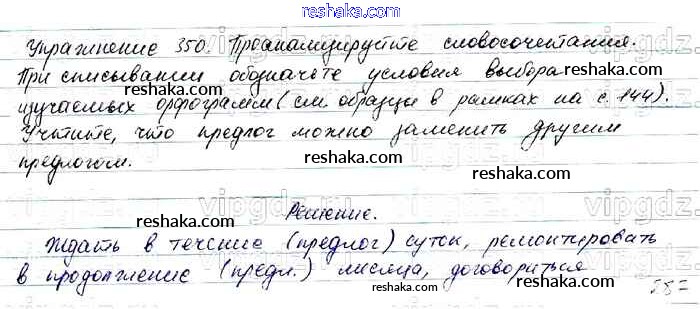 reshaka.com
Упражнение 350. Проанализируйте словосочетания.
reshaka.com
При списывании обозначьте условия выбора
reshaka.com
изучаемых орфограмм (см. образцы в рамках на с. 144).
reshaka.com
Учтите, что предлог можно заменить другим
предлогом.
reshaka.com
Решение.
reshaka.com
Ждать в течение (предлог) суток, ремонтировать
в продолжение (предл.) месяца, договориться
reshaka.com